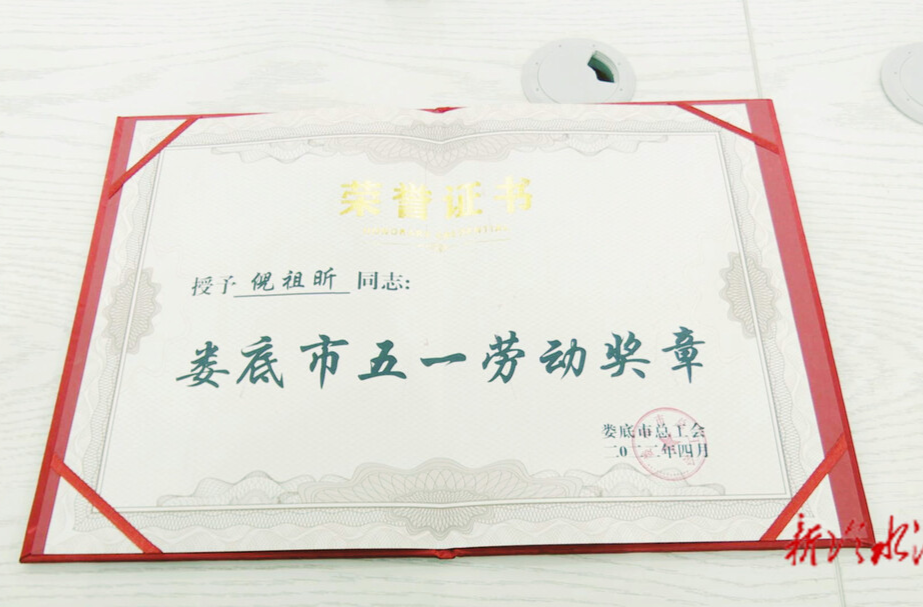 荣誉证书
授予 倪祖昕 同志:
娄底市五一劳动奖章
娄底市总工会
二〇二二年四月
新冷水江